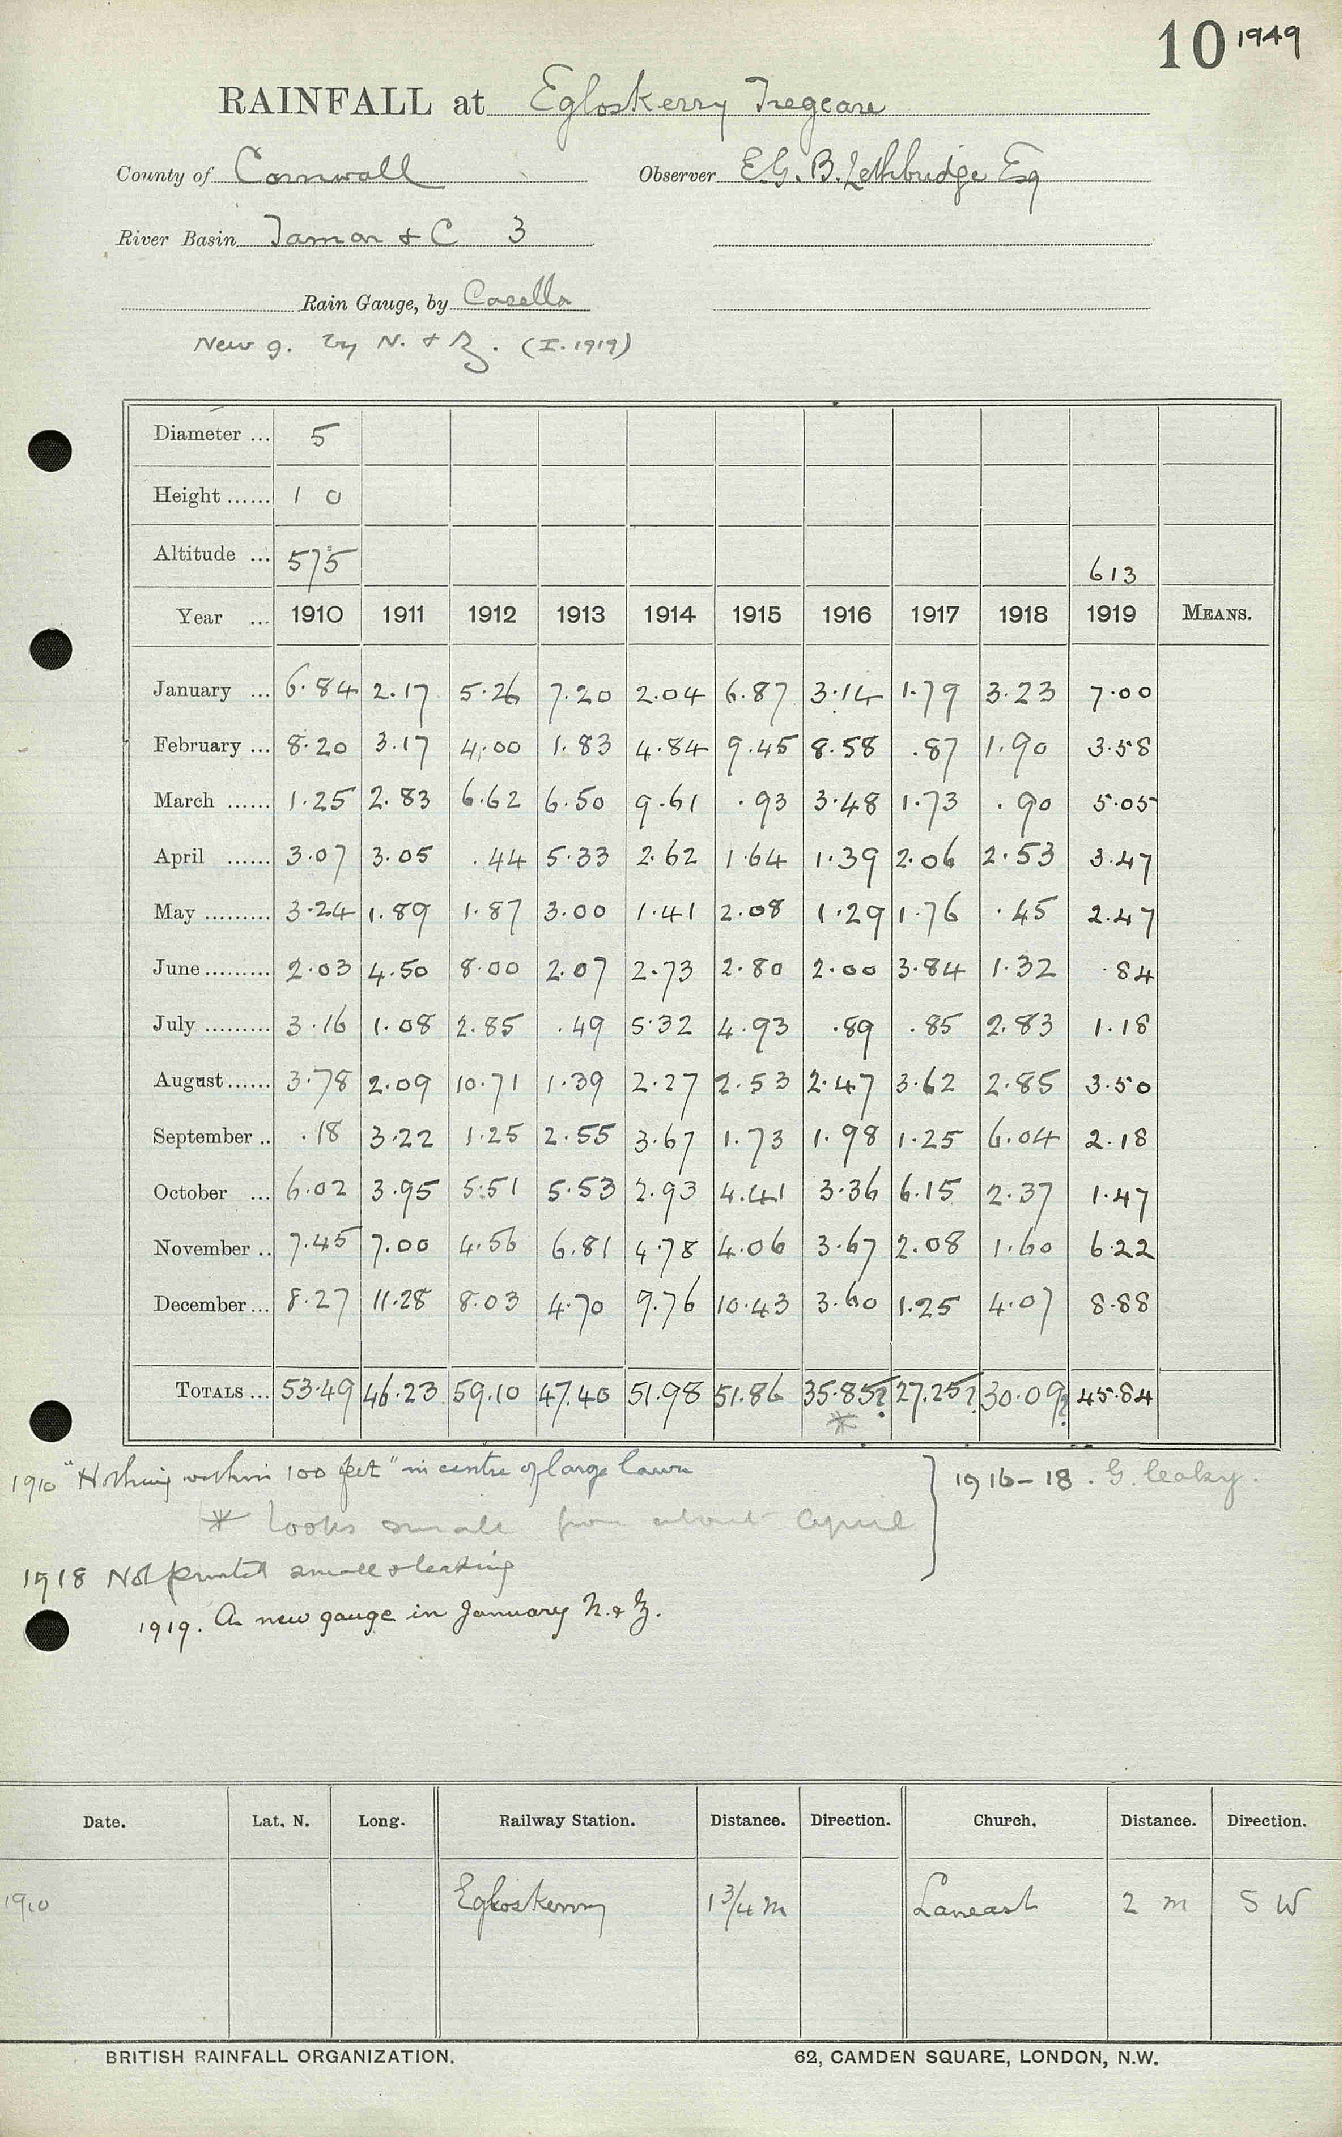 10 1949
RAINFALL at Egloskerry Tregeare
County of Cornwall Observer E.G.B. Lethbridge Esq
River Basin Tamar & C 3
Rain Gauge, by Casella
New g. by N. & Z. (I. 1919)
Diameter ... 5
Height ...... 1 0
Altitude ... 575 613
Year ... 1910 1911 1912 1913 1914 1915 1916 1917 1918 1919 MEANS.
January ... 6.84 2.17 5.26 7.20 2.04 6.87 3.14 1.79 3.23 7.00
February ... 8.20 3.17 4.00 1.83 4.84 9.45 8.58 .87 1.90 3.58
March ...... 1.25 2.83 6.62 6.50 9.61 .93 3.48 1.73 .90 5.05
April ...... 3.07 3.05 .44 5.33 2.62 1.64 1.39 2.06 2.53 3.47
May ......... 3.24 1.89 1.87 3.00 1.41 2.08 1.29 1.76 .45 2.47
June ......... 2.03 4.50 8.00 2.07 2.73 2.80 2.00 3.84 1.32 .84
July ......... 3.16 1.08 2.85 .49 5.32 4.93 .89 .85 2.83 1.18
August ...... 3.78 2.09 10.71 1.39 2.27 2.53 2.47 3.62 2.85 3.50
September .. .18 3.22 1.25 2.55 3.67 1.73 1.98 1.25 6.04 2.18
October ... 6.02 3.95 5.51 5.53 2.93 4.41 3.36 6.15 2.37 1.47
November .. 7.45 7.00 4.56 6.81 4.78 4.06 3.67 2.08 1.60 6.22
December ... 8.27 11.28 8.03 4.70 9.76 10.43 3.60 1.25 4.07 8.88
TOTALS ... 53.49 46.23 59.10 47.40 51.98 51.86 35.85? 27.25? 30.09? 45.84
*
1910 "Nothing within 100 feet" in centre of large lawn
1916-18. G. leaky.
* Looks small from about April
1918 Not printed small & leaking
1919. A new gauge in January N. & Z.
Date. Lat. N. Long. Railway Station. Distance. Direction. Church. Distance. Direction.
1910 Egloskerry 1 3/4 m Laneast 2 m S W
BRITISH RAINFALL ORGANIZATION. 62, CAMDEN SQUARE, LONDON, N.W.